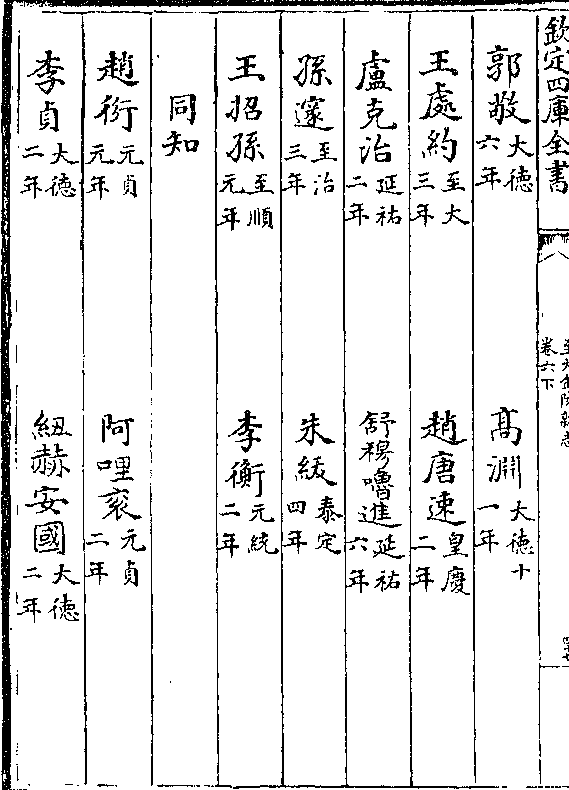 欽定四庫全書
至大金陵新志
卷六下
郭敬大德六年 高淵大德十一年
王處約至大三年 趙唐速皇慶二年
盧克治延祐二年 舒穆嚕進延祐六年
孫邃至治三年 朱紱泰定四年
王招孫至順元年 李衡元統二年
同知
趙衍元貞元年 阿哩袞元貞二年
李貞大德二年 紐赫安國大德二年